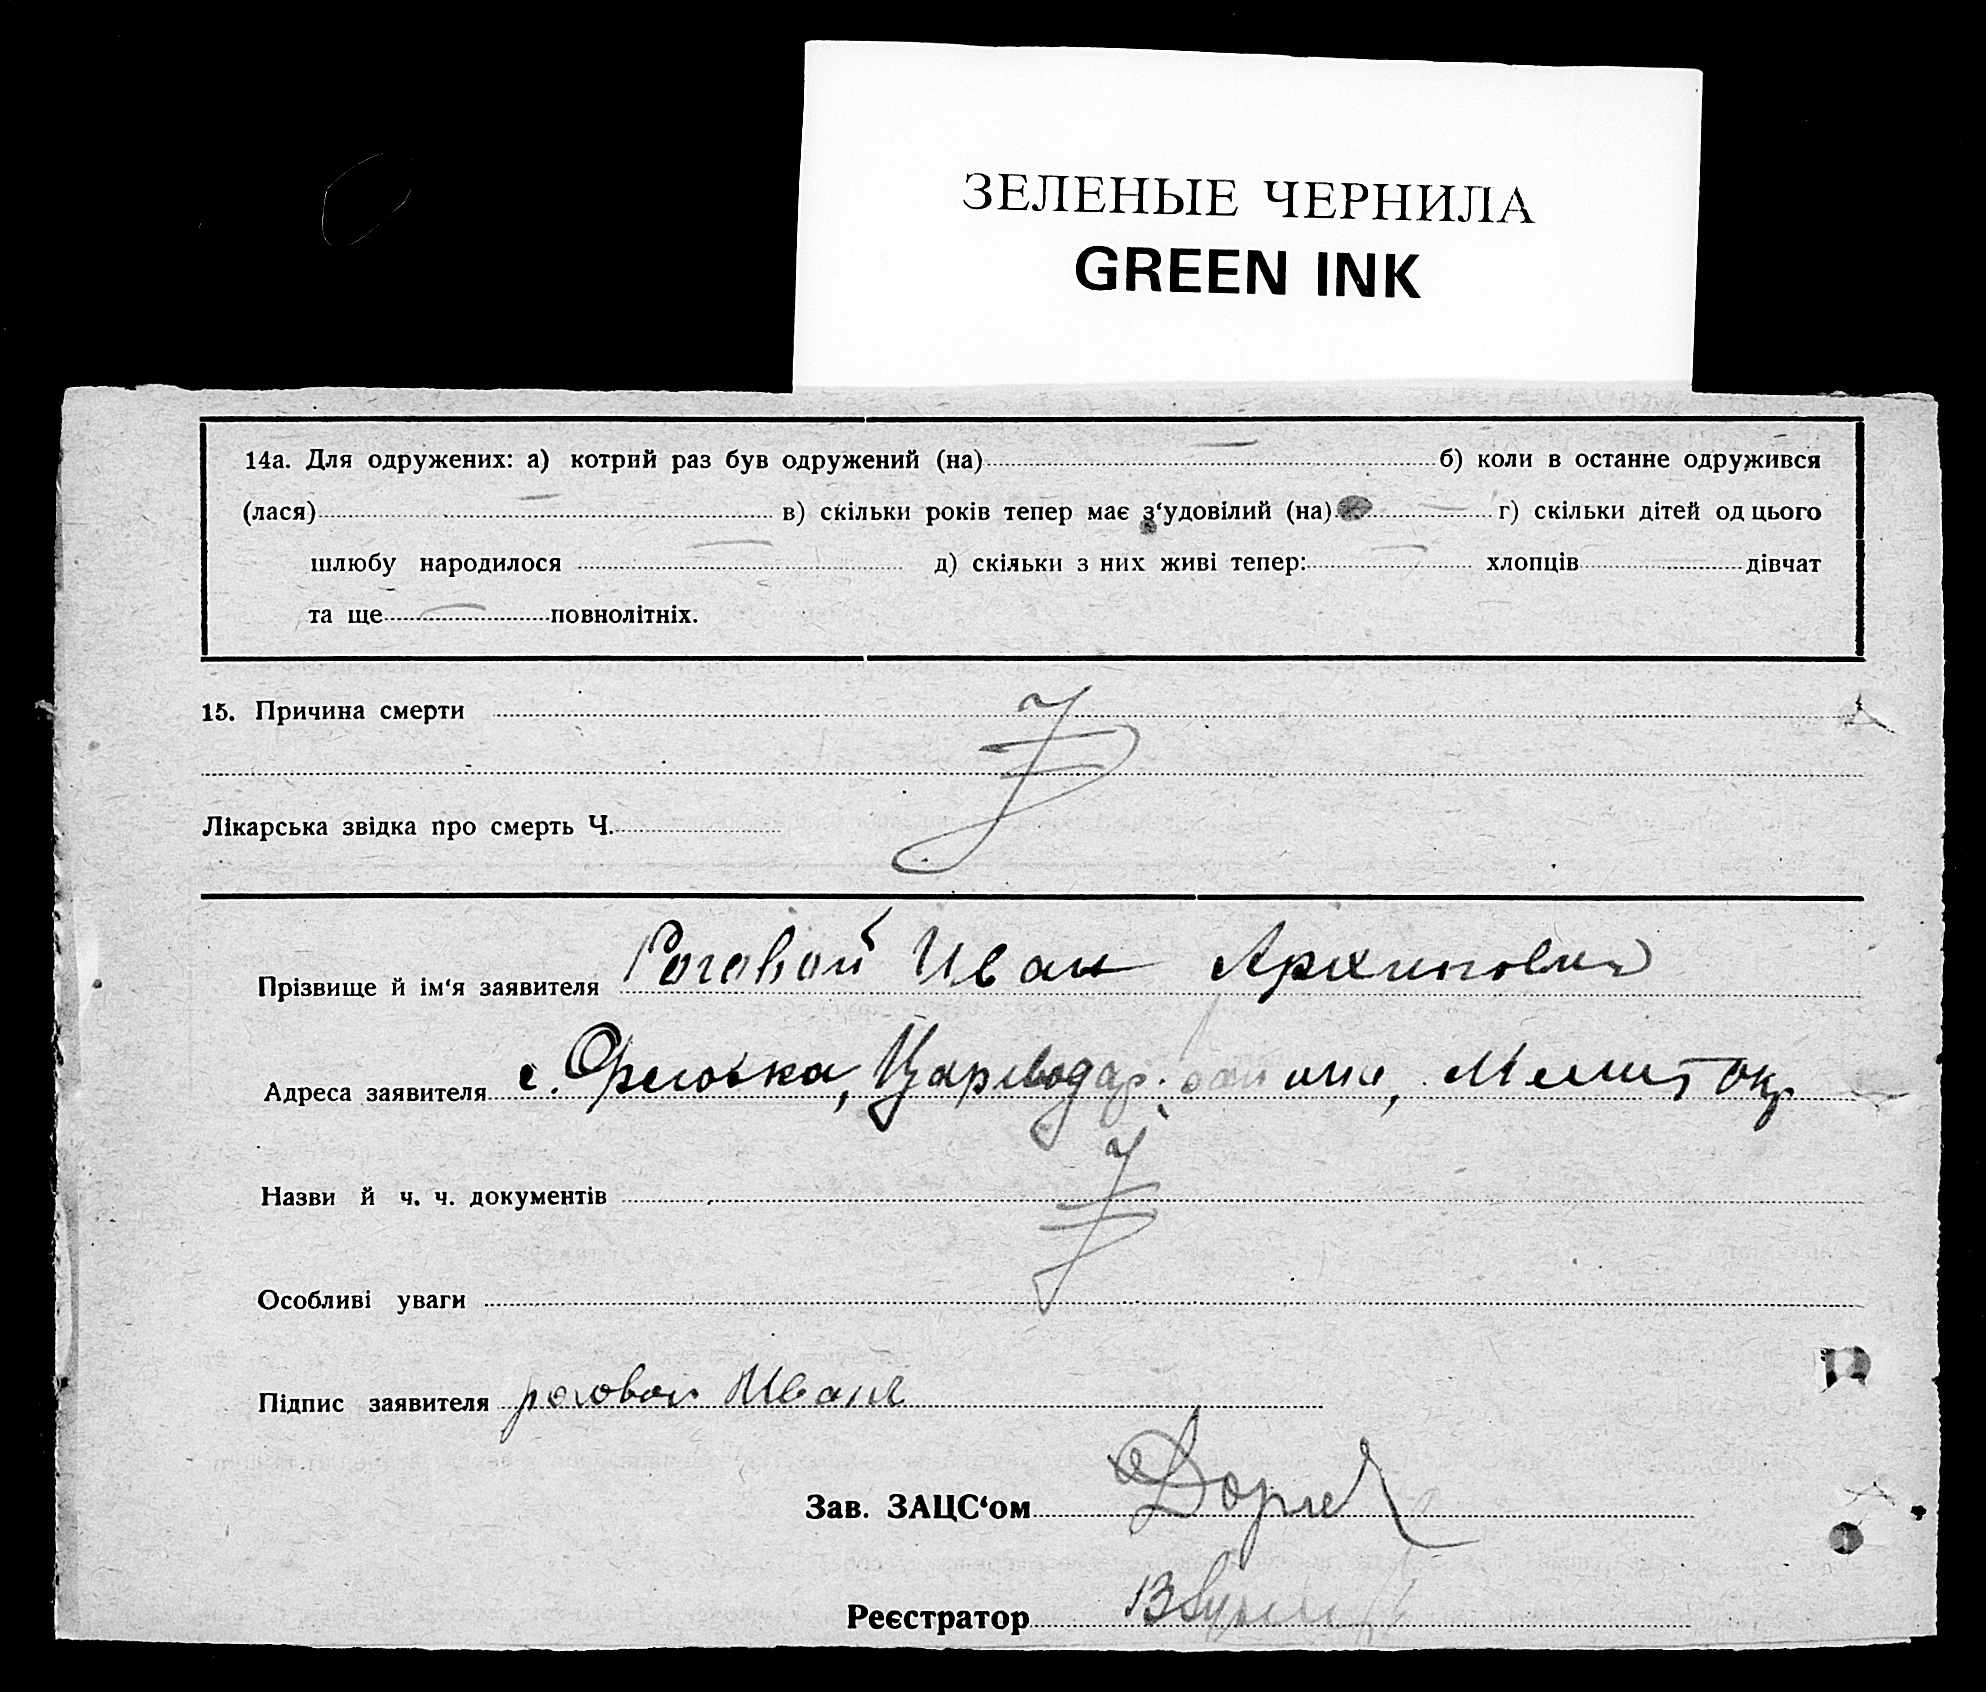 ЗЕЛЕНЫЕ ЧЕРНИЛА
GREEN INK
14а. Для одружених: а) котрий раз був одружений (на) б) коли в останне одружився
(лася) в) скільки років тепер має з‘удовілий (на) г) скільки дітей од цього
шлюбу народилося д) скільки з них живі тепер: хлопців дівчат
та ще повнолітніх.
15. Причина смерти
Лікарська звідка про смерть Ч.
Прізвище й ім‘я заявителя Роговой Иван Архипович
Адреса заявителя с. Ореховка, Цареводар. района, Мелит окр
Назви й ч. ч. документів
Особливі уваги
Підпис заявителя роговой Иван
Зав. ЗАЦС‘ом
Реєстратор